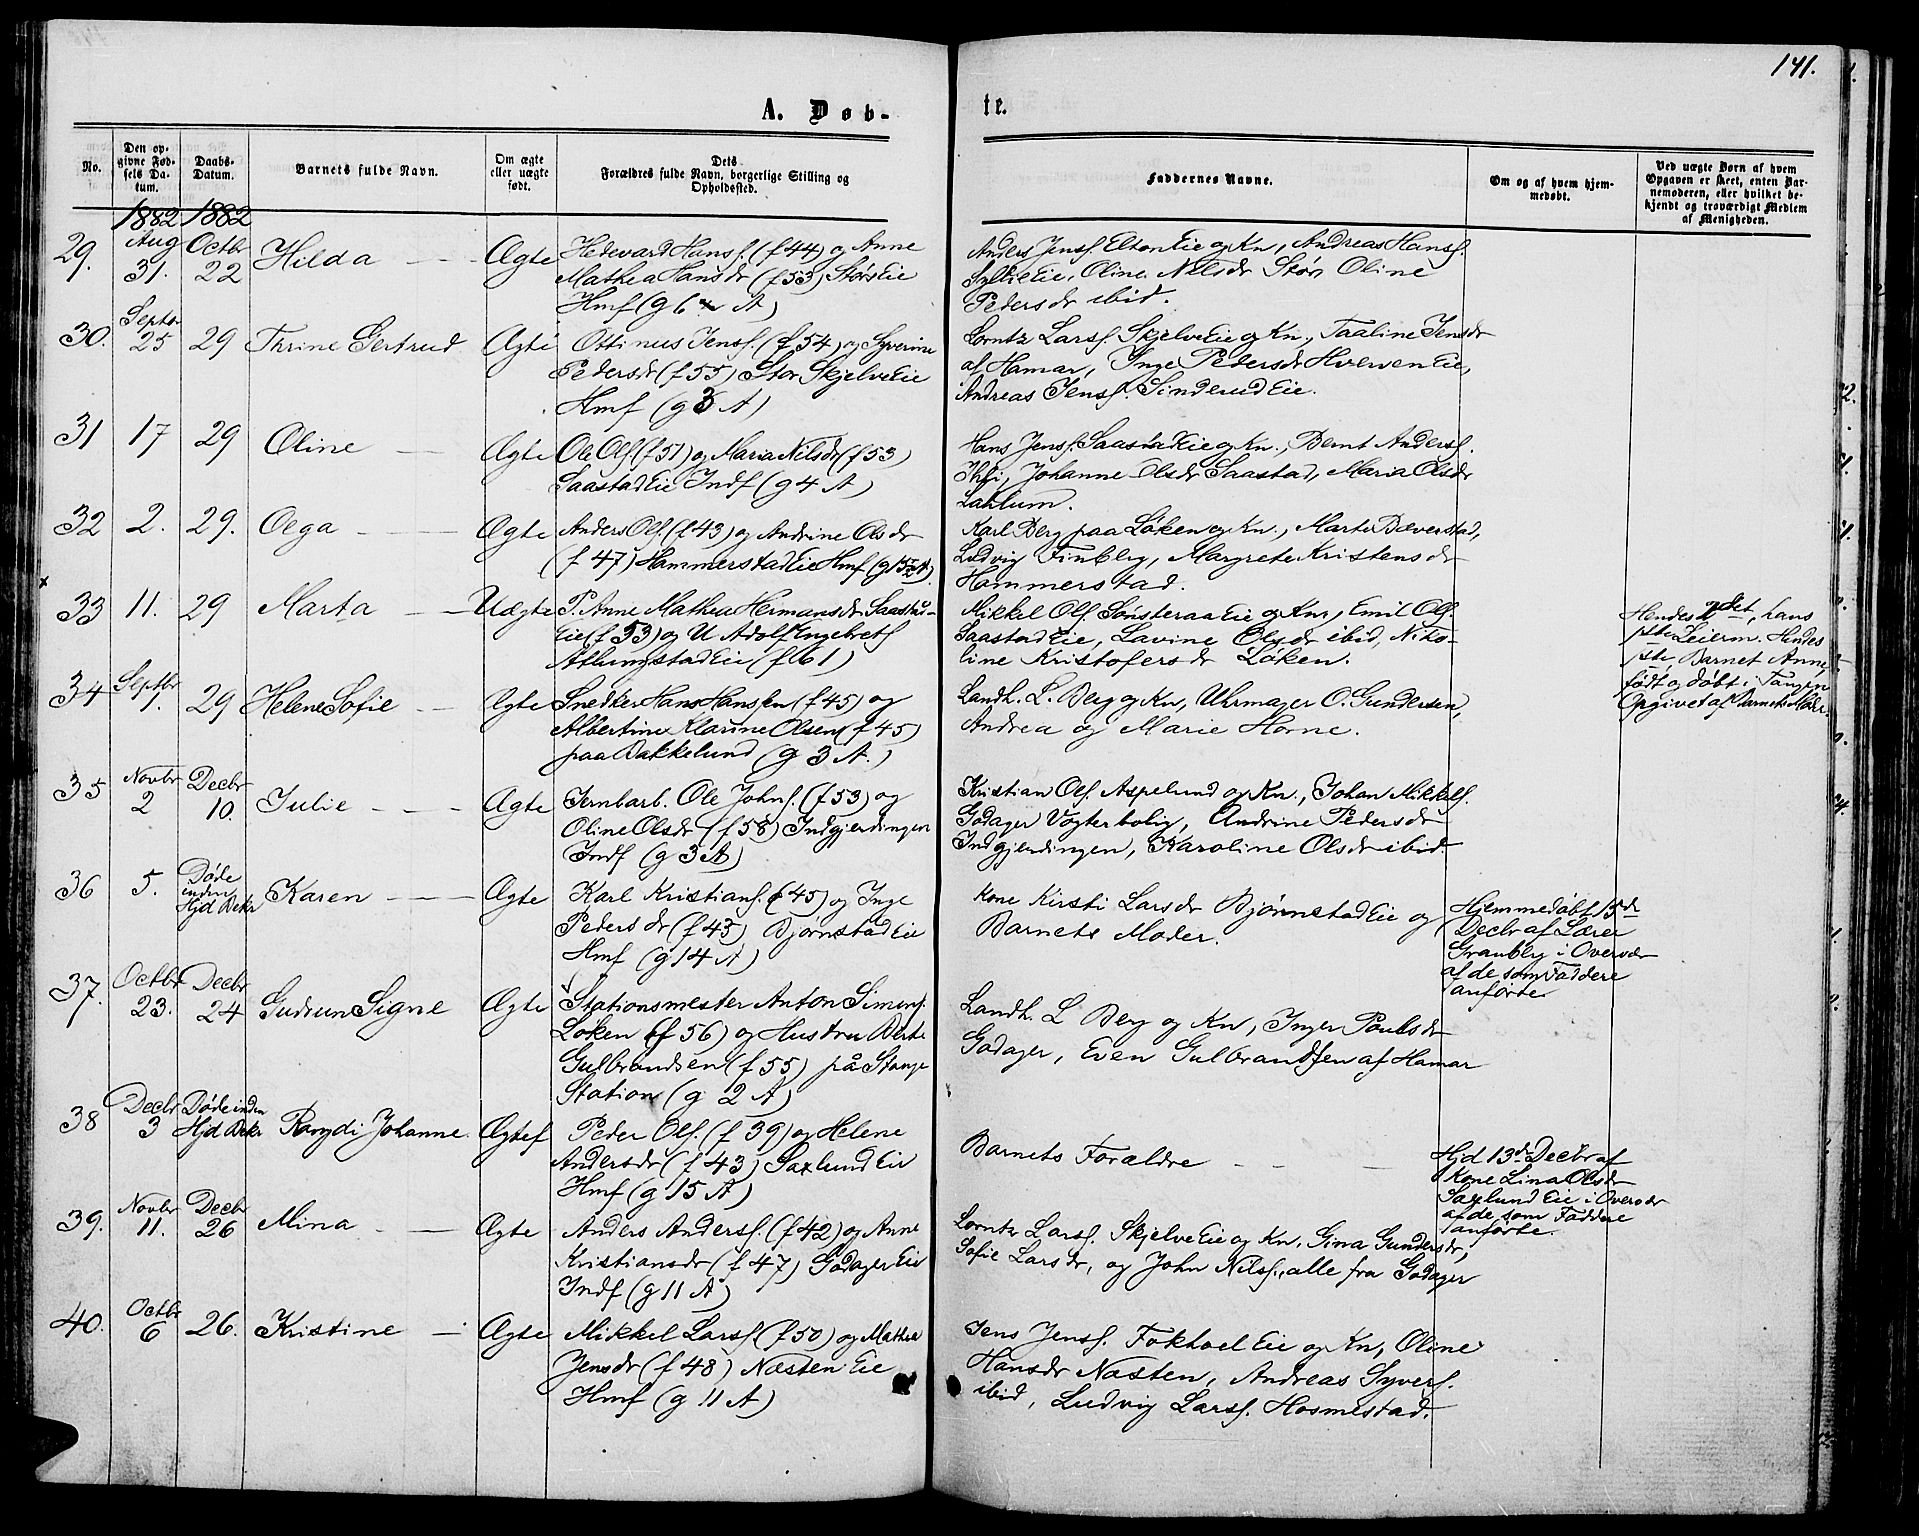 141.
A. Døb-
te.
No.
Den op-
givne Fød-
sels Da-
tum.
Daabs-
Datum.
Barnets fulde Navn.
Om ægte
eller uægte
født.
Dets
Forældres fulde Navn, borgerlige Stilling og
Opholdssted.
Faddernes Navne.
Om og af hvem hjem-
medøbt.
Ved uægte Børn af hvem
Opgaven er skeet, enten Bar-
nemoderen, eller hvilket be-
kjendt og troværdigt Medlem
af Menigheden.
1882 1882
29. Aug 31. Octbr 22 Hilda Ægte
Hedevard Hansf. (f 44) og Anne
Mathea Hansdr (f 53) StørsEie
Hmf (g 6 A)
Anders Jensf. EltonEie og Kn, Andreas Hansf.
Oline Nilsdr Størs Oline
Pedersdr ibid.
30. Septbr 25 29 Thrine Gertrud Ægte
Ottinus Jensf. (f 54) og Syverine
Pedersdr (f 55) Stor SkjelveEie
Hmf (g 3 A)
Lorntz Larsf. SkjelveEie og Kn, Taaline Jensdr
af Hamar, Inge Pedersdr HvervenEie,
Andreas Jensf. SinderudEie.
31 17 29 Oline Ægte
Ole Olsf (f 51) og Maria Nilsdr (f 53)
SaastadEie Indf (g 4 A)
Hans Jensf. SaastadEie og Kn, Bernt Andersf.
Ihli, Johanne Olsdr Saastad, Maria Olsdr
Lahlum.
32 2. 29. Olga Ægte
Anders Olf. (f 43) og Andrine Olsdr
(f 47) HammerstadEie Hmf (g 15 A)
Karl Berg paa Løken og Kn., Marte Bæverstad,
Ludvig Finbley, Margrete Kristensdr
Hammerstad.
33 11. 29 Marta Uægte
P. Anne Mathea Hermansdr Saastad-
Eie (f 53) og U Adolf Engebretf
AtlungstadEie (f 61)
Mikkel Olf. SønsteraaEie og Kn, Emil Olf.
SaastadEie, Lavine Olsdr ibid, Niko-
line Kristofersdr Løken.
Hendes 2det, hans
1ste Leierm. Hendes
1ste Barnet Anne,
født og døbt i Tangen
Opgivet af Barnets Moder.
34 Septbr 7. 29 Helene Sofie Ægte
Snedker Hans Hansen (f 45) og
Albertine Klarine Olsen (f 45)
paa Bakkelund (g 3 A.)
Landh. L. Berg og Kn, Uhrmager O. Gundersen,
Andrea og Marie Horne.
35 Novbr 2 Decbr 10. Julie Ægte
Jernbarb. Ole Johnf. (f 53) og
Oline Olsdr (f 58) Indgjerdingen
Indf (g 3 A)
Kristian Olf. Aspelund og Kn., Johan Mikkelf.
Godager Vogterbolig, Andrine Pedersdr
Indgjerdingen, Karoline Olsdr ibid.
36 5. Døde
inden
Hjd Bekr Karen Ægte
Karl Kristianf. (f 45) og Inge
Pedersdr (f 43) BjørnstadEie
Hmf (g 14 A)
Kone Kirsti Larsdr BjørnstadEie og
Barnets Moder.
Hjemmedøbt 15de
Decbr af Lærer
Granbly i Oversdr
af de som Faddere
anførte
37. Octbr 23. Decbr 24 Gudrun Signe Ægte
Stationsmester Anton Simenf.
Løken (f 56) og Hustru Berte
Gulbrandsen (f 55) på Stange
Station (g 2 A)
Landh. L Berg og Kn, Inger Paulsdr
Godager, Even Gulbrandsen af Hamar
38 Decbr 3 Døde inden
Hjd Bekr Rangdi Johanne. Ægtef
Peder Olf. (f 39) og Helene
Andersdr (f 43) SaxlundEie
Hmf (g 15 A)
Barnets Forældre
Hjd 13de Decbr af
Kone Lina Olsdr
Saxlund Eie i Oversdr
af de som Faddere
anførte.
39. Novbr 11. Decbr 26 Mina Ægte
Anders Andersf. (f 42) og Anne
Kristiansdr (f 47) GodagerEie
Indf (g 11 A)
Lorntz Larsf. SkjelveEie og Kn, Gina Gundersdr,
Sofie Larsdr, og John Nilsf., alle fra Godager
40. Octbr 6 26. Kristine Ægte
Mikkel Larsf (f 50) og Mathea
Jensdr (f 48) Næsten Eie
Hmf (g 11 A)
Jens Jensf. Foktoel Eie og Kn, Oline
Hansdr Næsten, Andreas Syverf.
ibid, Ludvig Larsf. Hosmestad.